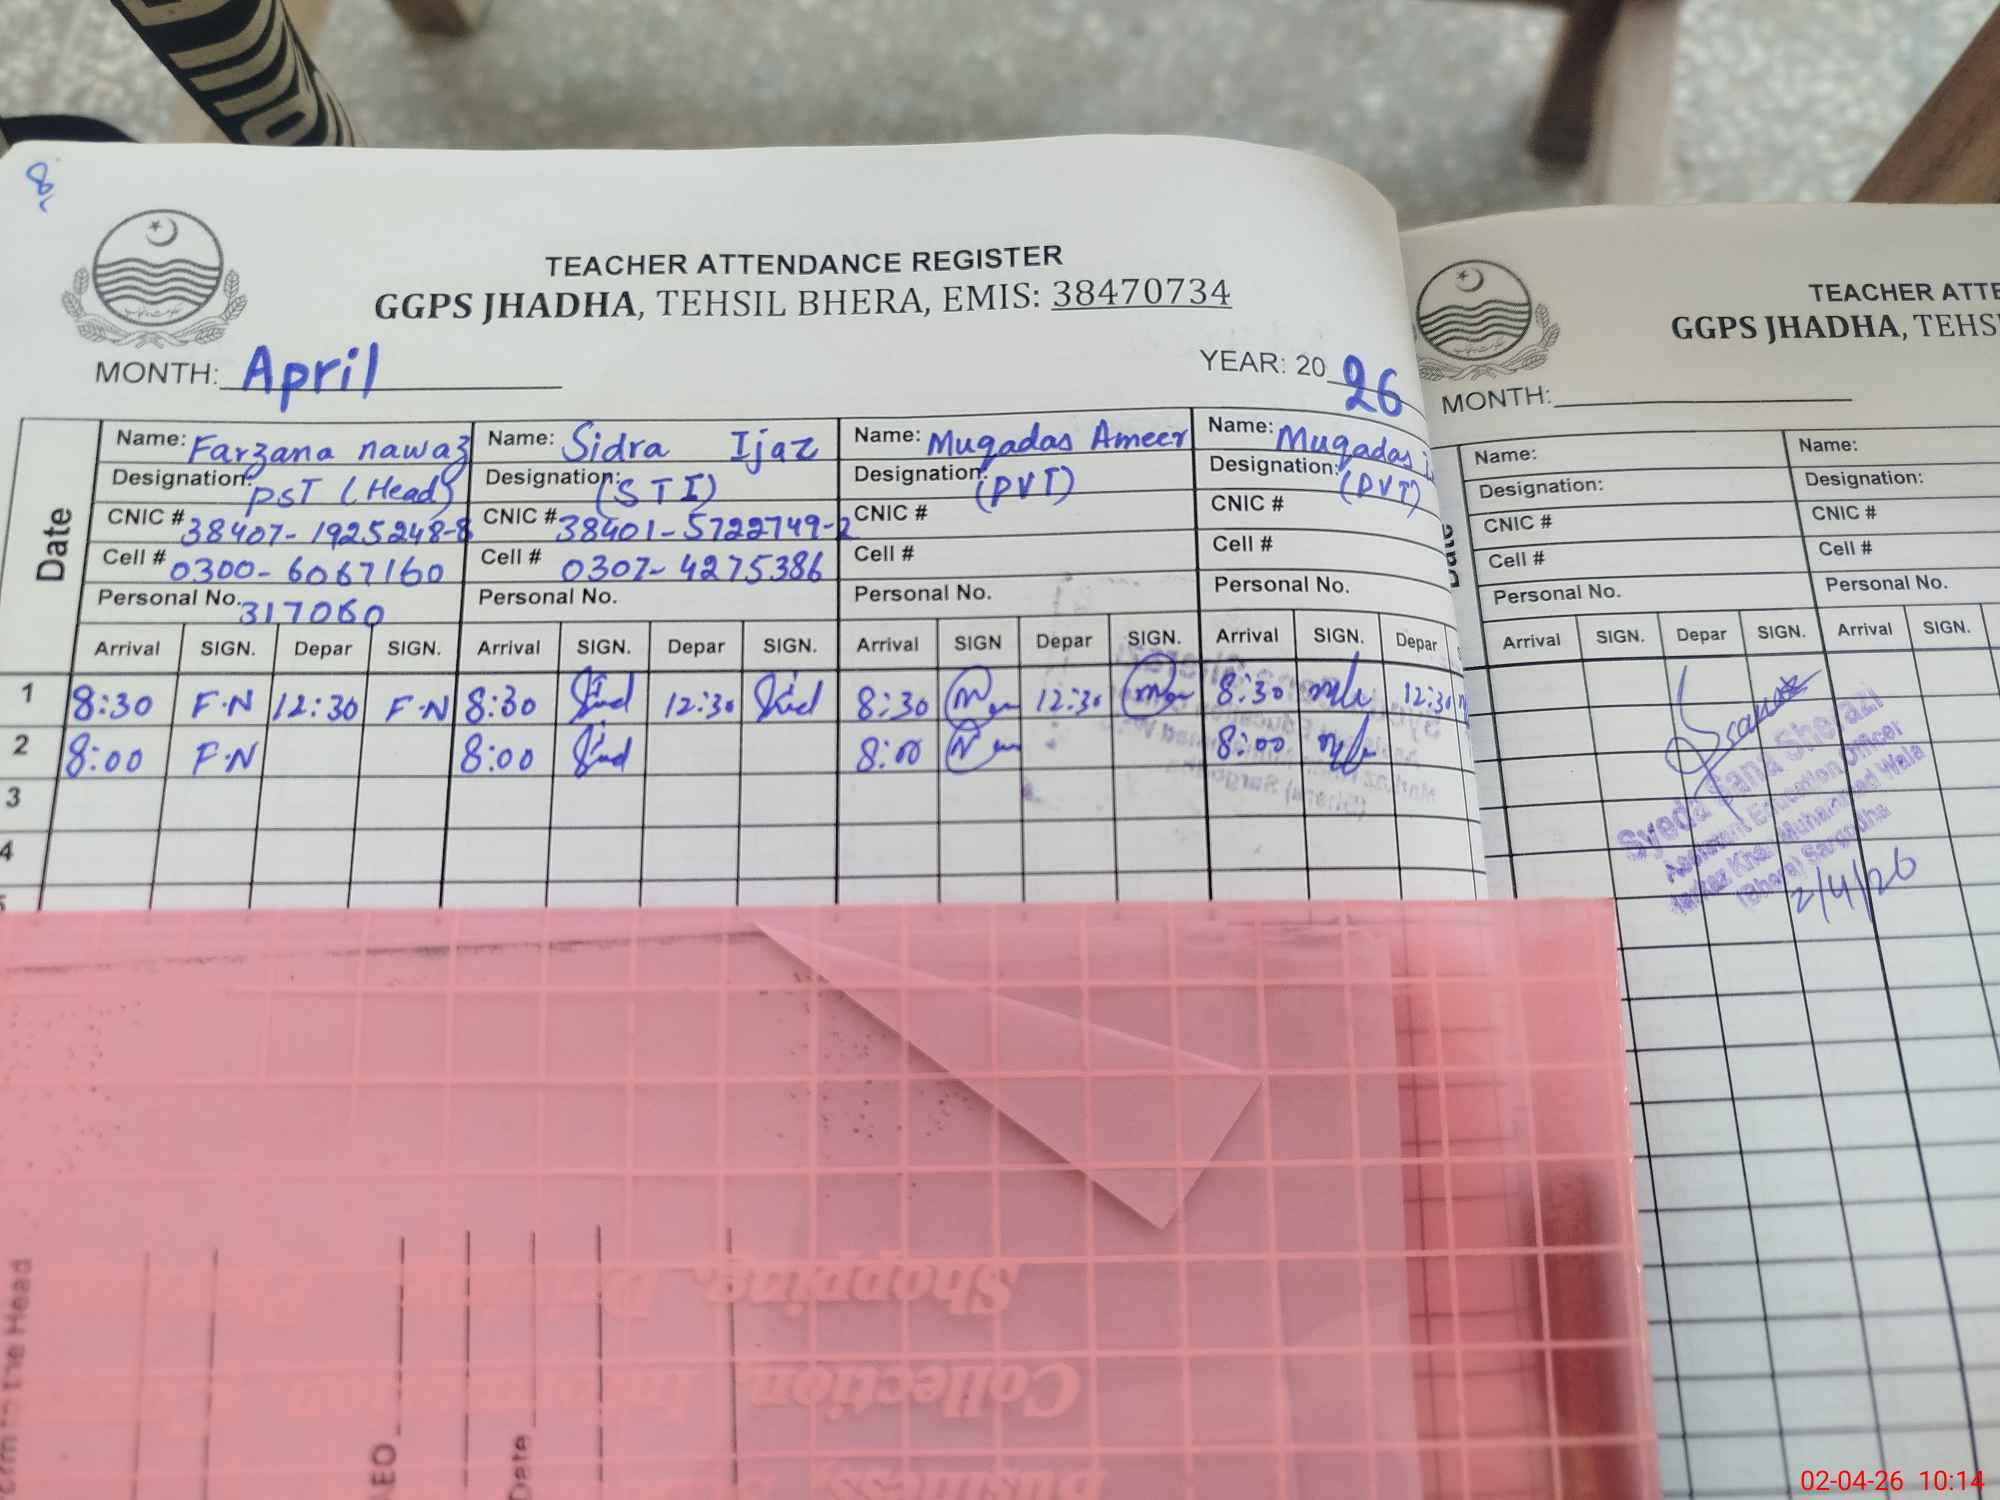 TEACHER ATTENDANCE REGISTER
GGPS JHADHA, TEHSIL BHERA, EMIS: 38470734
MONTH: April YEAR: 2026
Date
Name: Farzana nawaz Name: Sidra Ijaz Name: Muqadas Ameer Name: Muqadas
Designation: PST (Head) Designation: (STI) Designation: (PVT) Designation: (PVT)
CNIC # 38407-1925248-8 CNIC # 38401-5722749-2 CNIC # CNIC #
Cell # 0300-6067160 Cell # 0307-4275386 Cell # Cell #
Personal No. 317060 Personal No. Personal No. Personal No.
Arrival SIGN. Depar SIGN. Arrival SIGN. Depar SIGN. Arrival SIGN Depar SIGN. Arrival SIGN. Depar
1 8:30 F.N 12:30 F.N 8:30 12:30 8:30 12:30 8:30 12:30
2 8:00 F.N 8:00 8:00 8:00
3
4
TEACHER ATTE
GGPS JHADHA, TEHS
MONTH:
Name: Name:
Designation: Designation:
CNIC # CNIC #
Cell # Cell #
Personal No. Personal No.
Arrival SIGN. Depar SIGN. Arrival SIGN.
Syeda Sana Sherazi
Assistant Education Officer
Markaz Khan Muhammad Wala
(Bhera) Sargodha
2/4/26
Shopping,
Collection
AEO
Date
to the Head
02-04-26 10:14